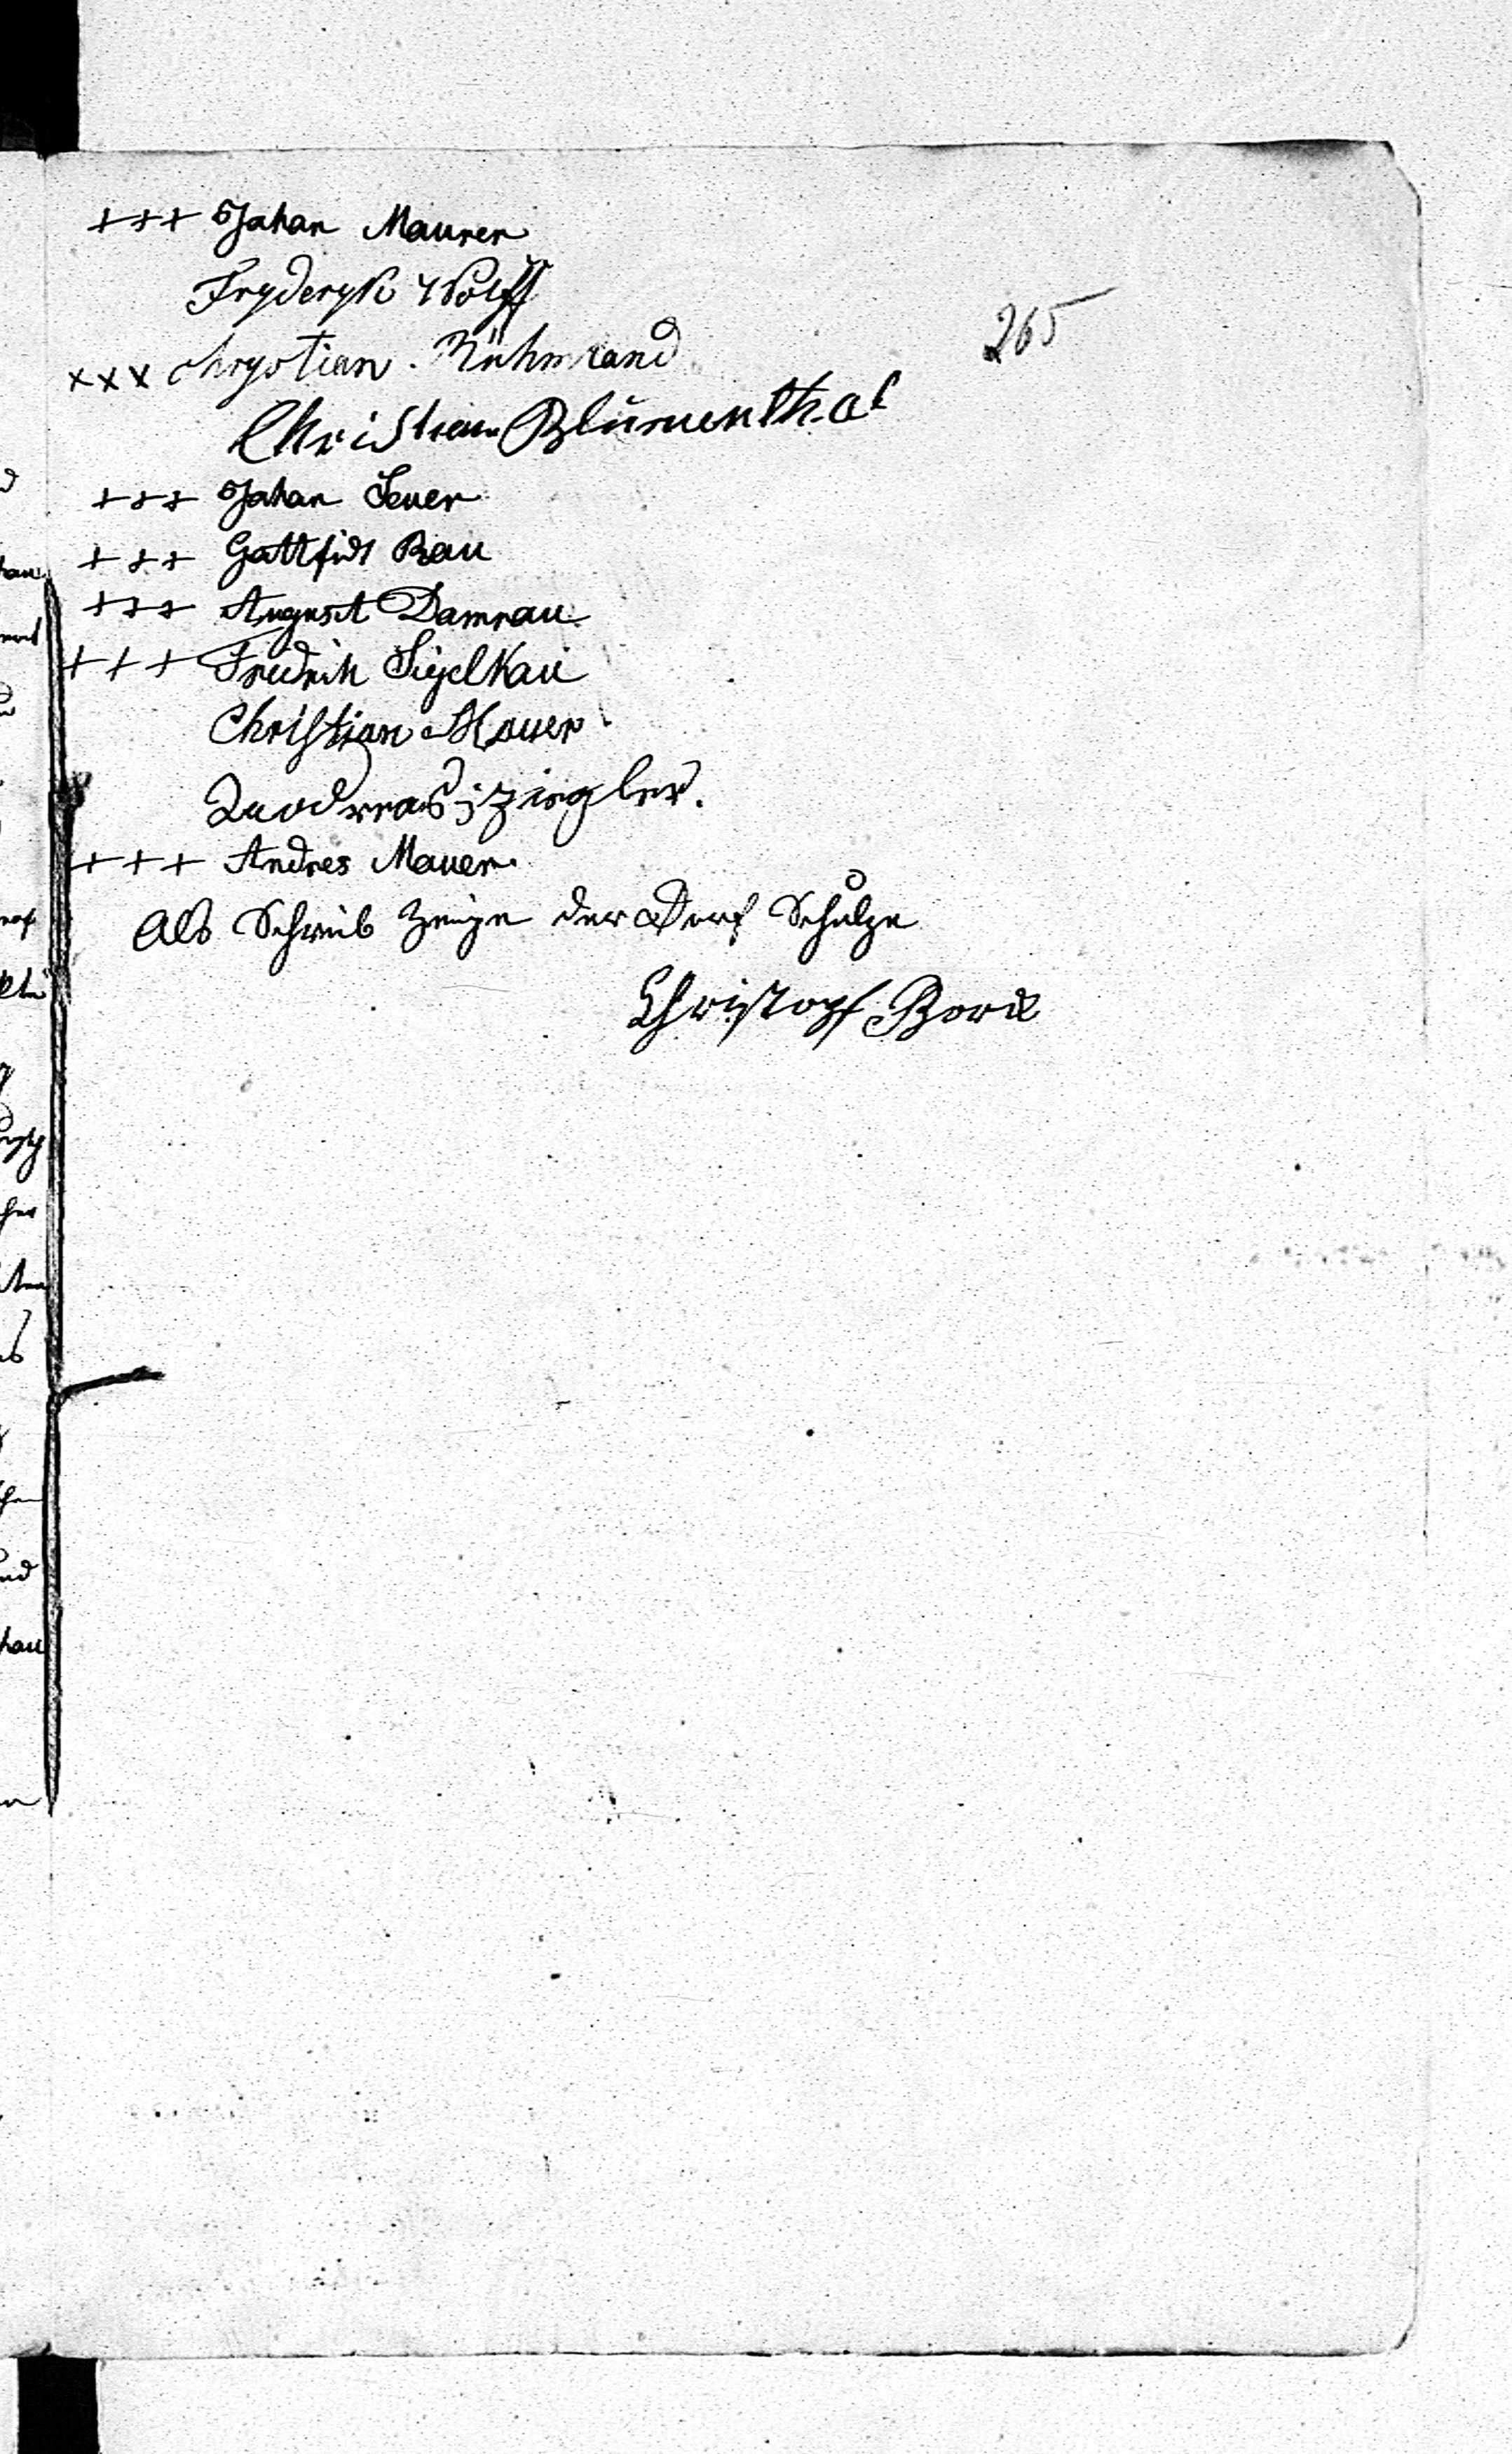 +++ Johan Maurer
Fryderyk Wolff
265
xxx chrystian. Rühmland
Christian Blumenthal
+++ Johan Seuer
+++ Gottfrid Rau
+++ August Damrau
+++ Fredrik Sigelkau
Christian Mauer
Andreas Ziegler.
+++ Andres Mauer.
Als Schreib Zeuge der Dorf Schulze
Christopf Bork